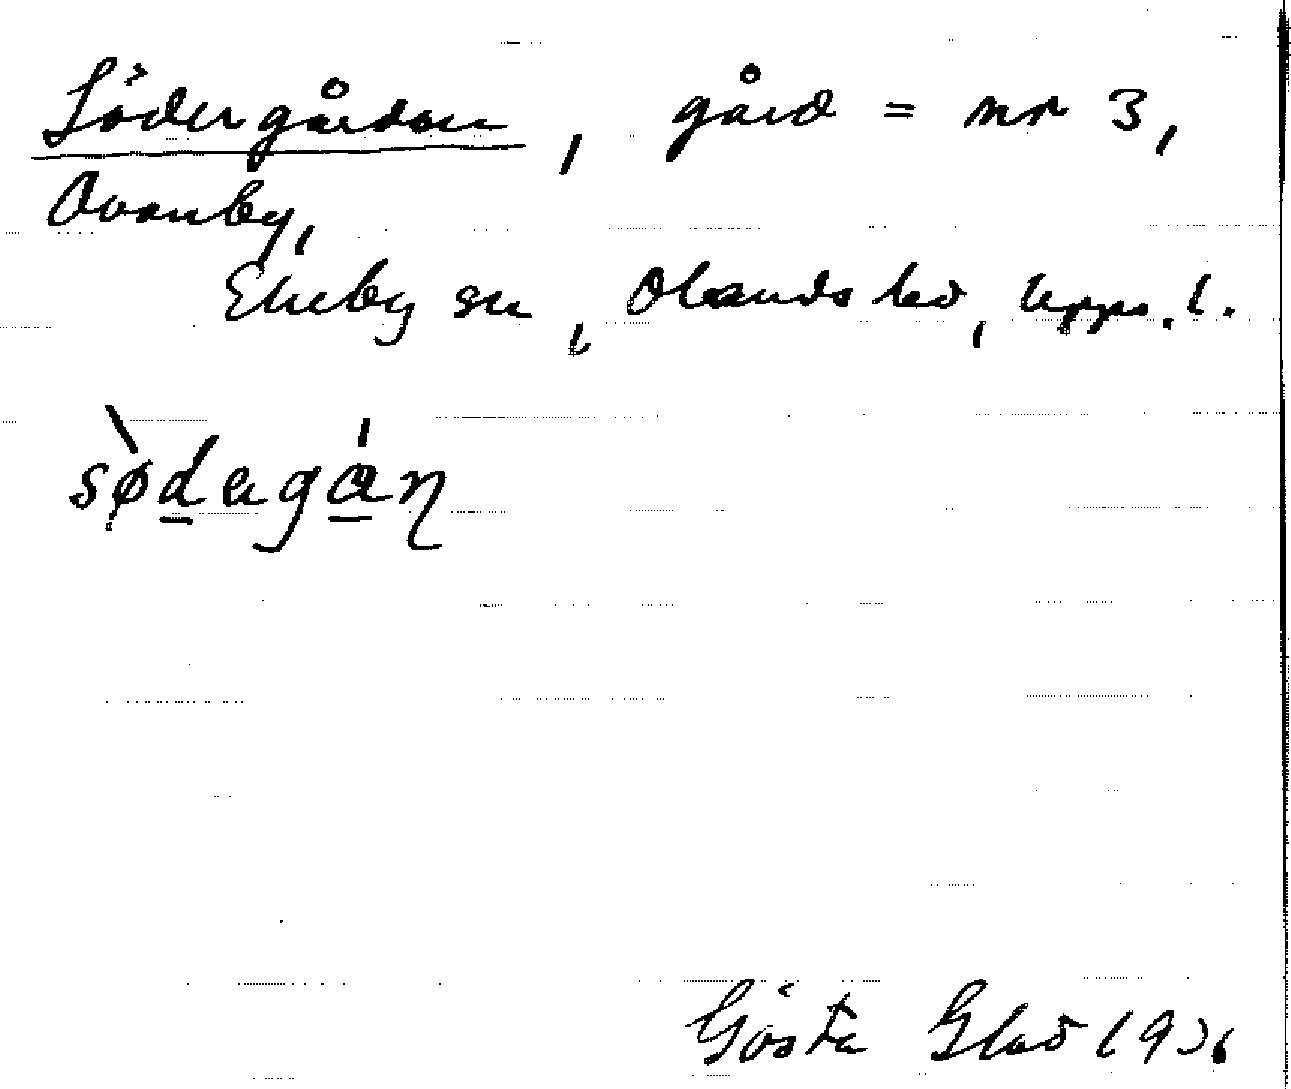 Södergården, gård = nr 3,
Ovanby,
Ekeby sn, Olands hd, Upps. l.
sø̀dagán
Gösta Glad 1936